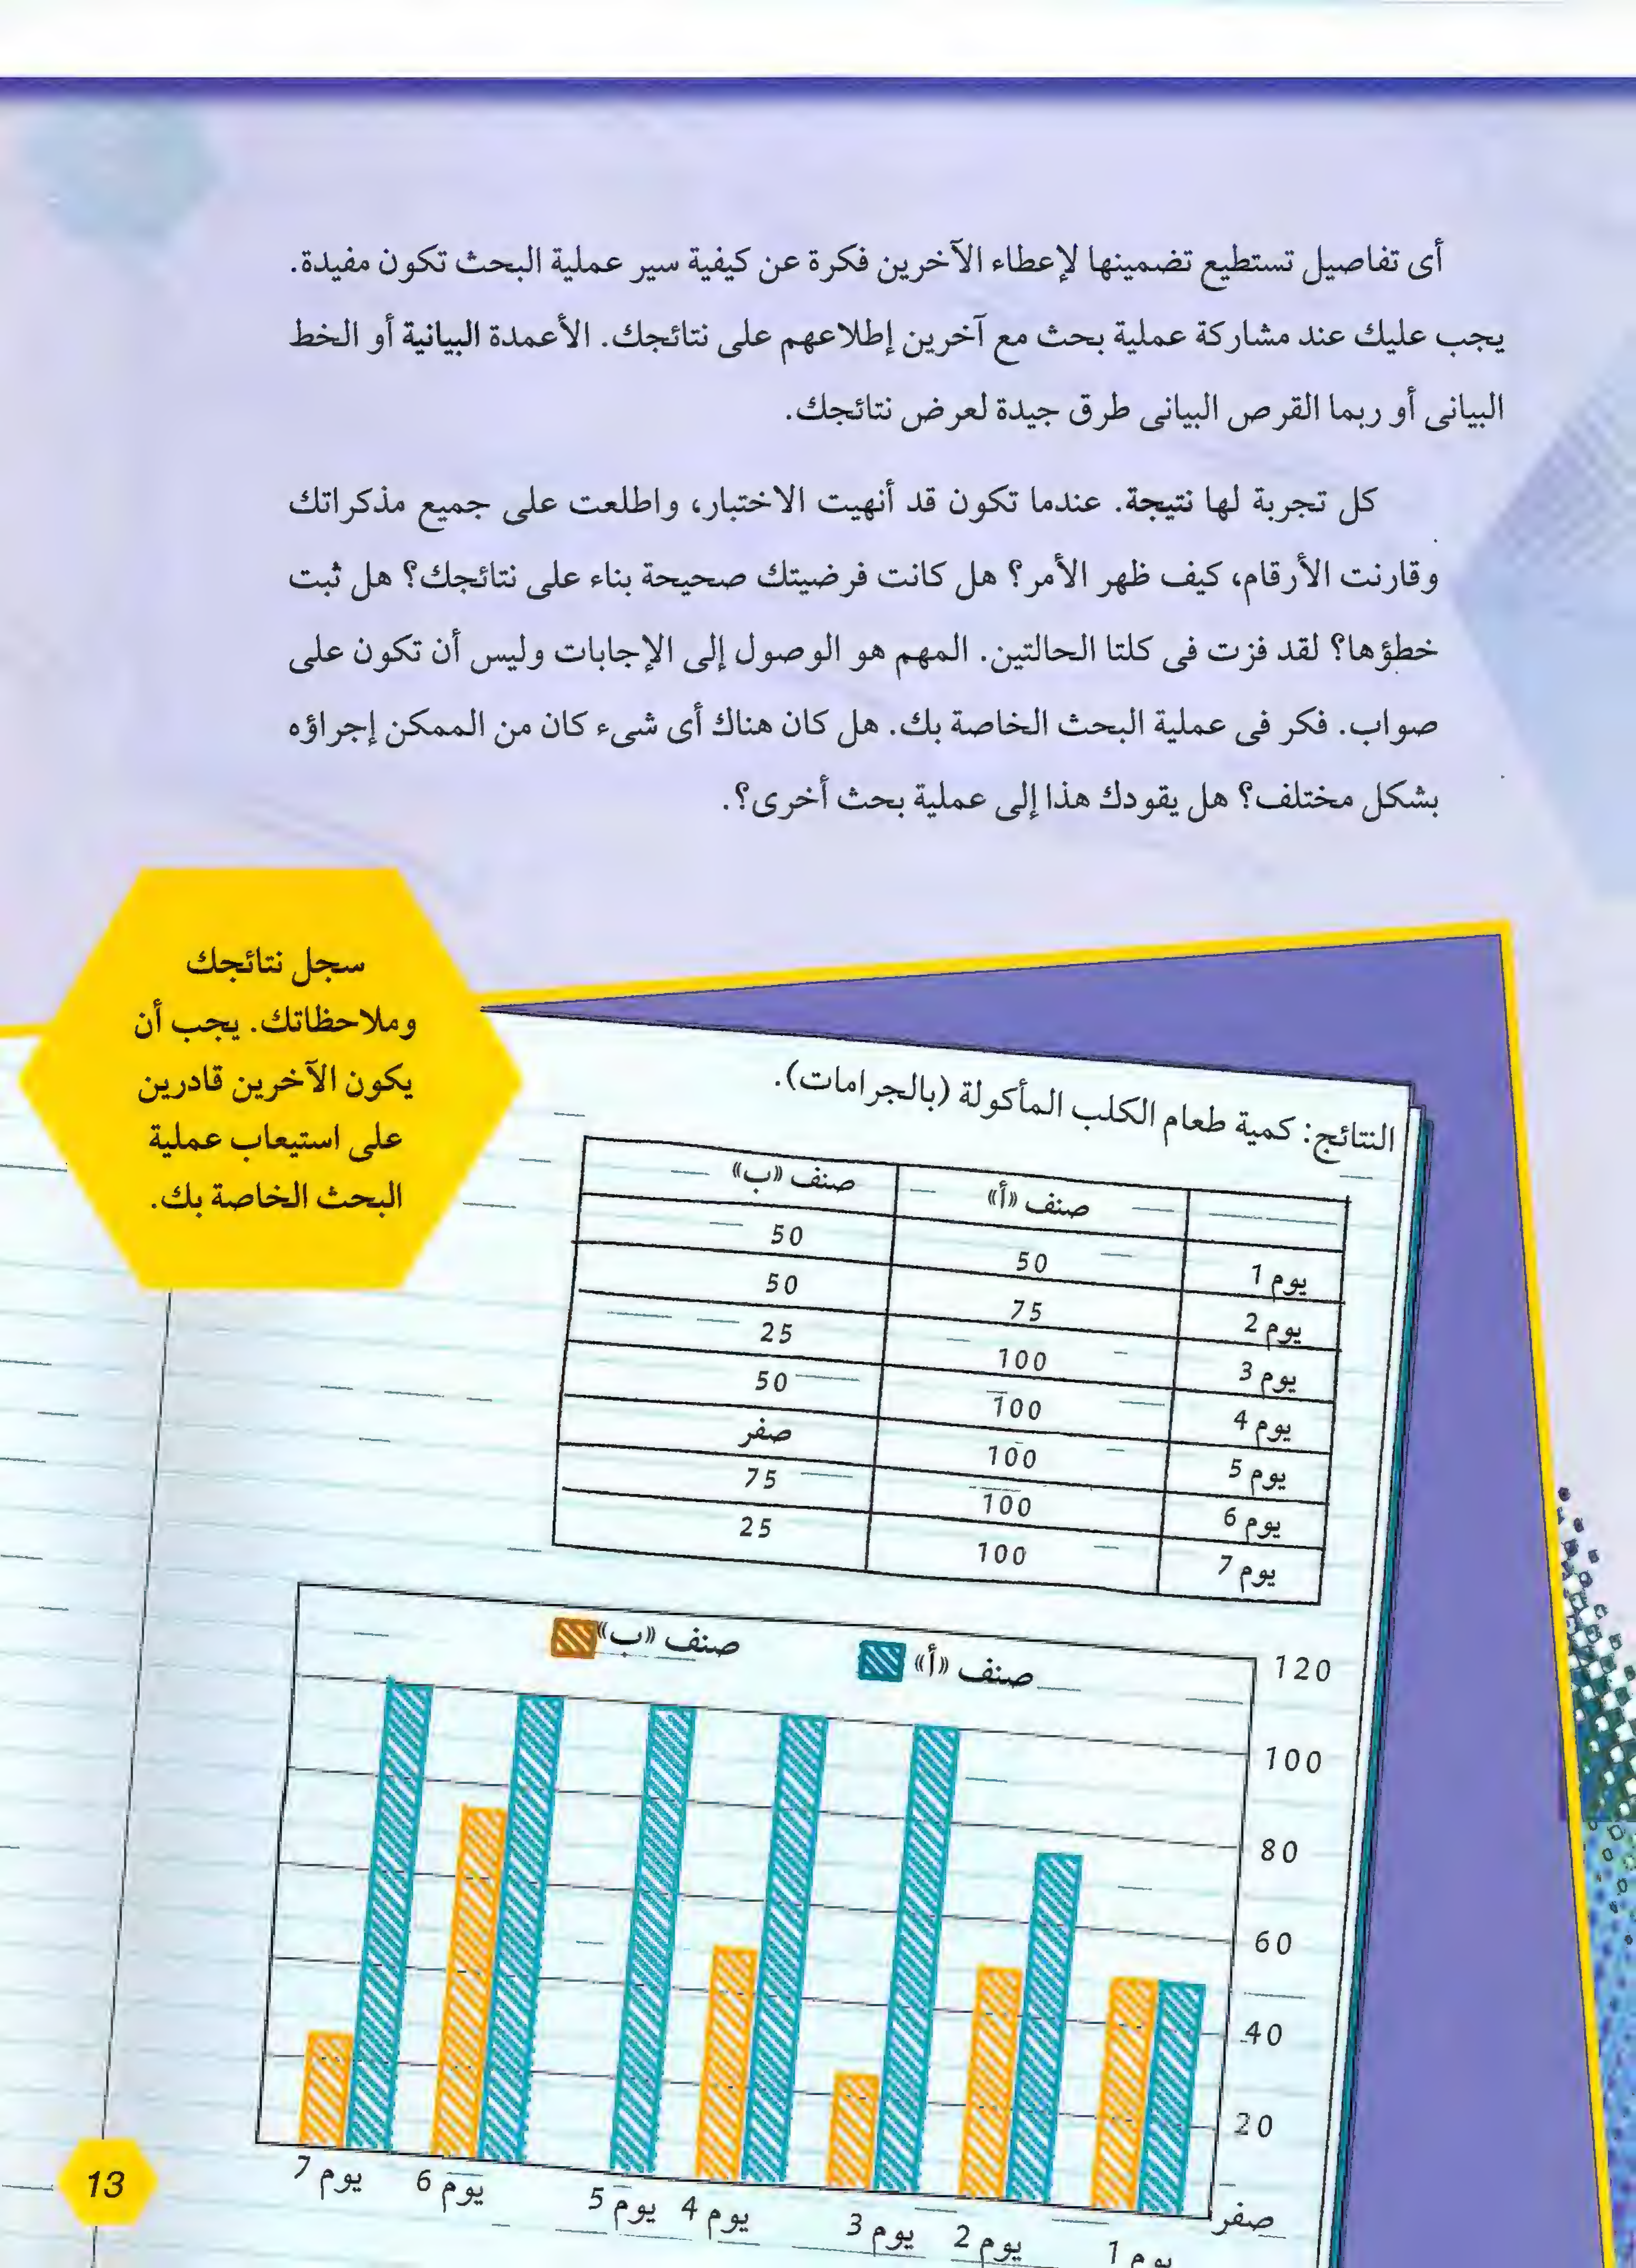 أى تفاصيل تستطيع تضمينها لإعطاء الآخرين فكرة عن كيفية سير عملية البحث تكون مفيدة.
يجب عليك عند مشاركة عملية بحث مع آخرين إطلاعهم على نتائجك. الأعمدة البيانية أو الخط
البيانى أو ربما القرص البيانى طرق جيدة لعرض نتائجك.
كل تجربة لها نتيجة. عندما تكون قد أنهيت الاختبار، واطلعت على جميع مذكراتك
وقارنت الأرقام، كيف ظهر الأمر؟ هل كانت فرضيتك صحيحة بناء على نتائجك؟ هل ثبت
خطؤها؟ لقد فزت فى كلتا الحالتين. المهم هو الوصول إلى الإجابات وليس أن تكون على
صواب. فكر فى عملية البحث الخاصة بك. هل كان هناك أى شىء كان من الممكن إجراؤه
بشكل مختلف؟ هل يقودك هذا إلى عملية بحث أخرى؟.
سجل نتائجك
وملاحظاتك. يجب أن
يكون الآخرين قادرين
على استيعاب عملية
البحث الخاصة بك.
النتائج: كمية طعام الكلب المأكولة (بالجرامات).
صنف «أ» صنف «ب»
يوم 1 50 50
يوم 2 75 50
يوم 3 100 25
يوم 4 100 50
يوم 5 100 صفر
يوم 6 100 75
يوم 7 100 25
صنف «أ» صنف «ب»
120
100
80
60
40
20
صفر
يوم 1 يوم 2 يوم 3 يوم 4 يوم 5 يوم 6 يوم 7
13